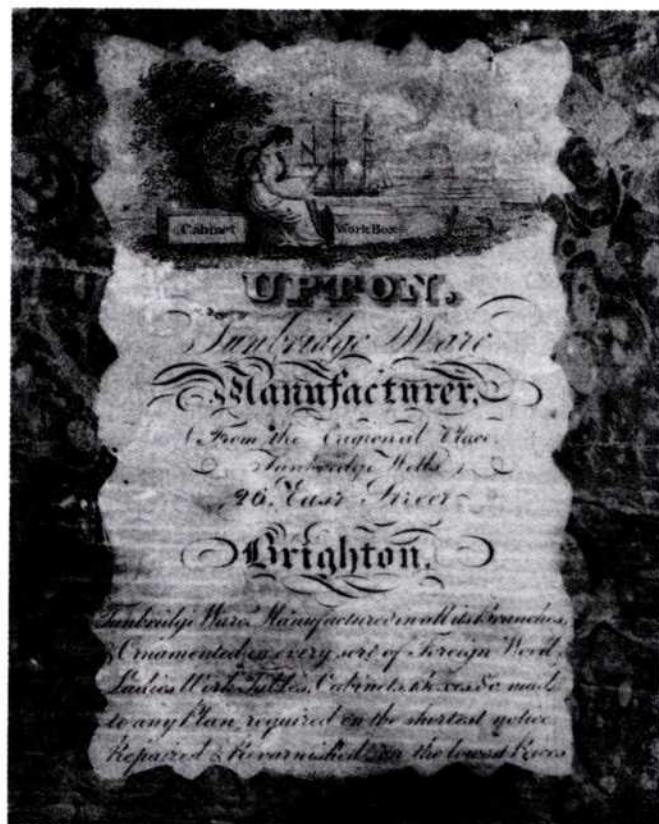 Cabinet
Work Box
UPTON,
Tunbridge Ware
Manufacturer,
From the Origional Place,
Tunbridge Wells
26, East Street
Brighton.
Tunbridge Ware Manufactured in all its Branches,
& Ornamented in every sort of Foreign Wood,
Ladies Work Tables, Cabinets, Boxes &c made
to any Plan required on the shortest notice
Repaired & Revarnished on the lowest